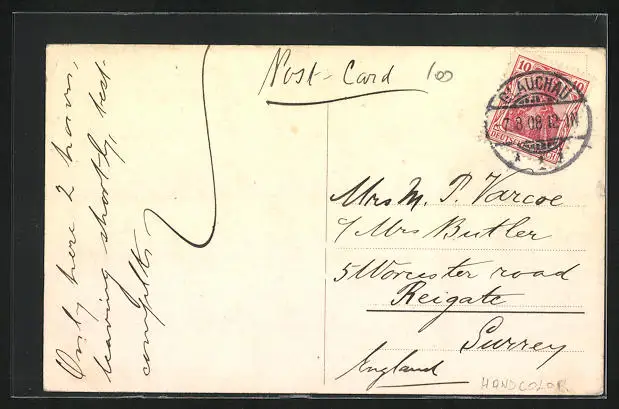 Only here 2 hours,
leaving shortly, best
Post-Card
100
10 10
GLAUCHAU
7.8.08.12-1N
DEUTSCHES REICH
Mrs M. P. Varcoe
c/ Mrs Butler
5 Worcester road
Reigate
Surrey
England
HANDCOLOR.